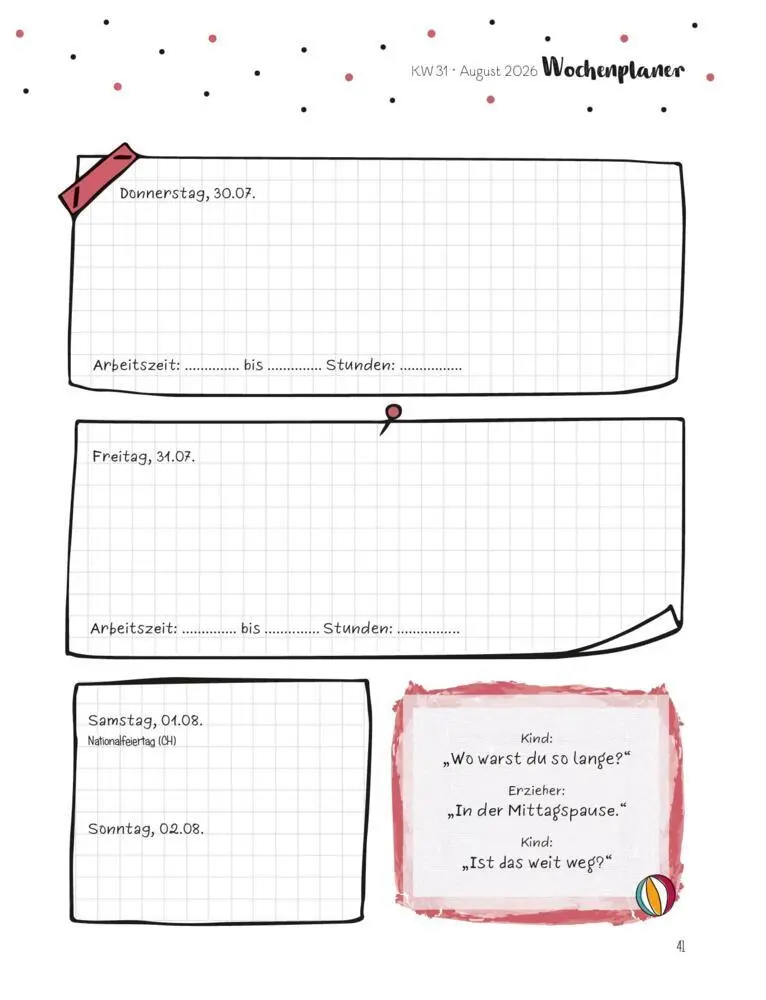 KW 31 · August 2026 Wochenplaner
Donnerstag, 30.07.
Arbeitszeit: ............. bis ............. Stunden: ...............
Freitag, 31.07.
Arbeitszeit: ............. bis ............. Stunden: ...............
Samstag, 01.08.
Nationalfeiertag (CH)
Sonntag, 02.08.
Kind:
„Wo warst du so lange?“
Erzieher:
„In der Mittagspause.“
Kind:
„Ist das weit weg?“
41